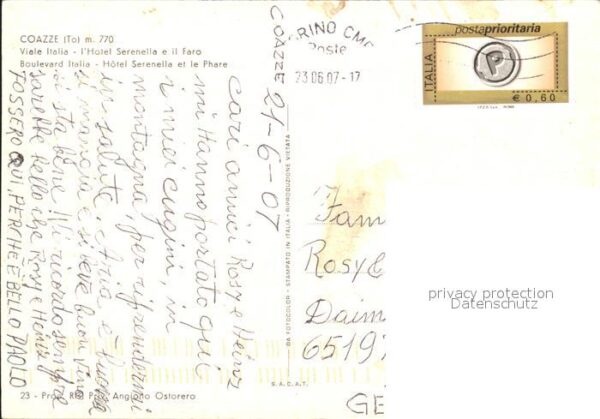 COAZZE (To) m. 770
Viale Italia - l'Hotel Serenella e il Faro
Boulevard Italia - Hôtel Serenella et le Phare
COAZZE 21-6-07
cari amici Rosy e Heinz
mi Hanno portato qui
i miei cugini, in
montagna, per riprendermi
in salute. Aria è buona
si mangia e si beve buon vino
si sta bene. Vi ricordo sempre
sarebbe bello che Rosy e Heinz
FOSSERO QUI, PERCHE È BELLO PAOLO
23 - Prop. Ris. Angiono Ostorero
DA FOTOCOLOR - STAMPATO IN ITALIA - RIPRODUZIONE VIETATA
S.A.C.A.T.
RINO CMP
Poste
23.06.07-17
postaprioritaria
P
ITALIA
€ 0,60
Fam
Rosy &
Daim
6519
GE
privacy protection
Datenschutz